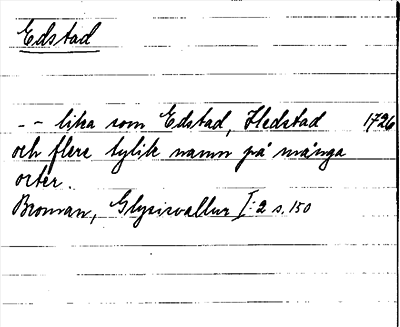 Edstad
-- lika som Edstad, Hedstad 1726
och flere tylik namn på många
orter.
Broman, Glysisvallur I:2 s. 150